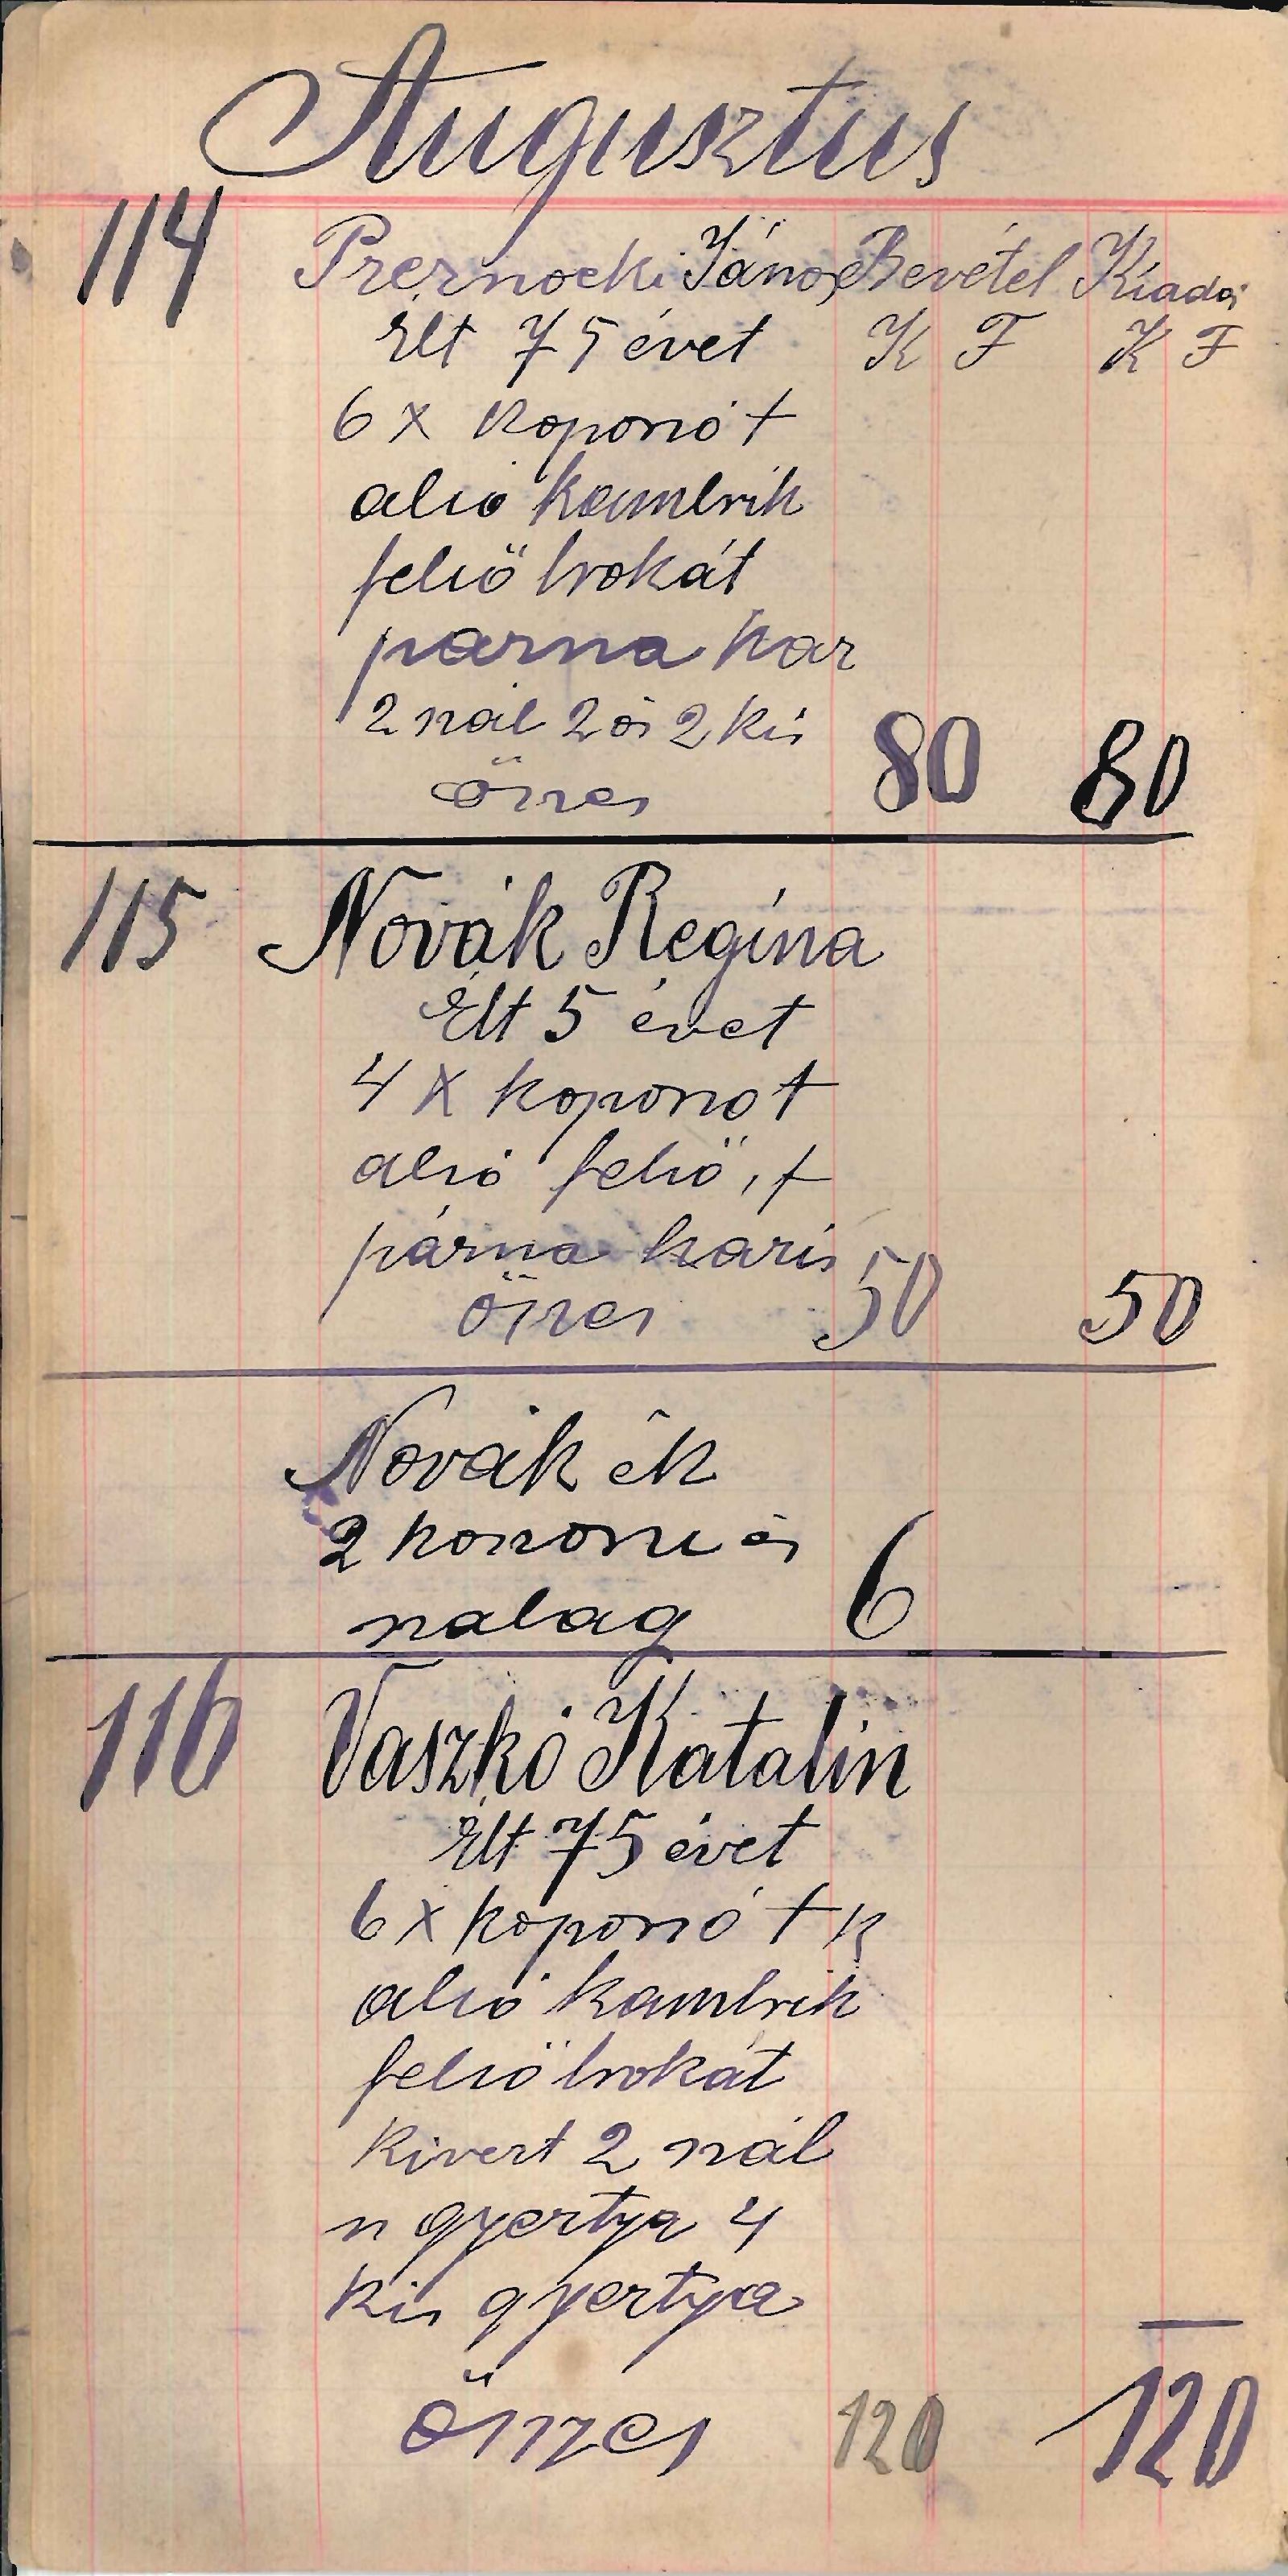 Augusztus
114 Prernocki János Bevétel Kiadás
Élt 75 évet K F K F
6 x koporsó †
alsó kambrik
felső brokát
párna kar
2 szál 2 és 2 kis 80 80
össes
115 Novák Regina
Élt 5 évet
4 x koporsó †
alsó felső, †
párna karis 50
össes 50
Novák ék
2 koszoru és
szalag 6
116 Vaszkó Katalin
Élt 75 évet
6 x koporsó † k
alsó kambrik
felső brokát
kivert 2 szál
n gyertya 4
kis gyertya
összes 120 120